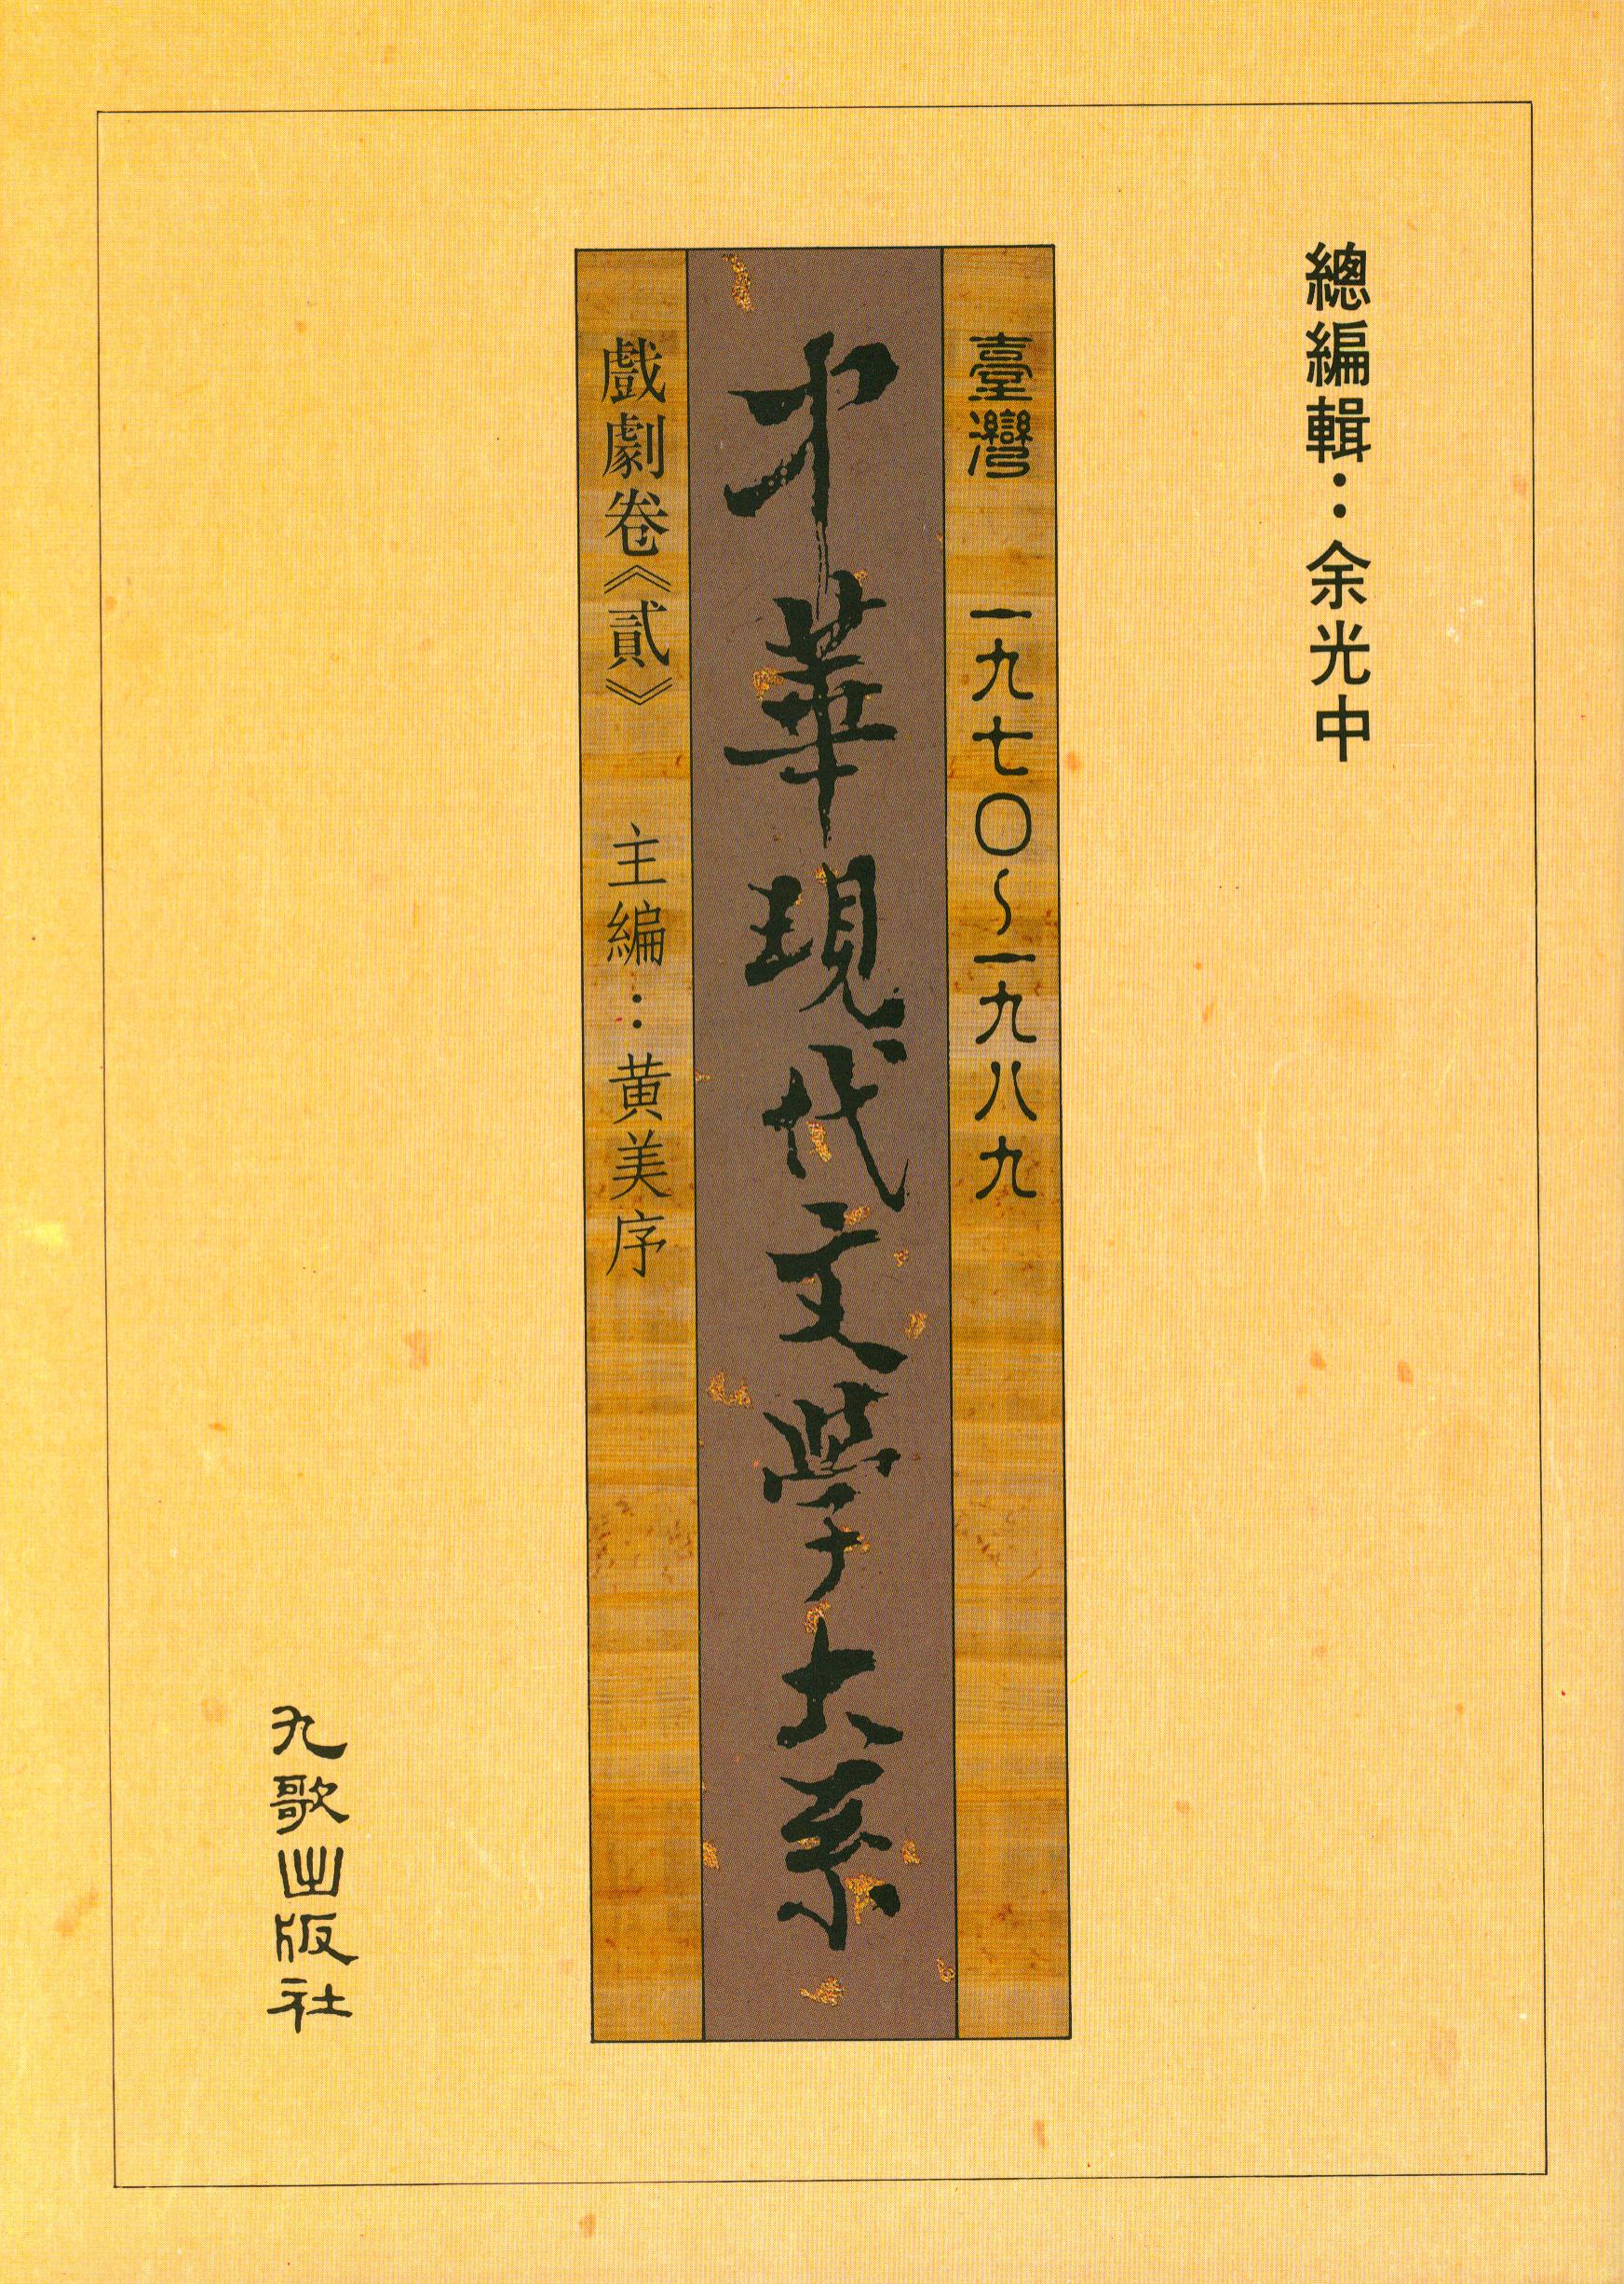 總編輯：余光中
臺灣 一九七〇～一九八九
中華現代文學大系
戲劇卷《貳》 主編：黃美序
九歌出版社